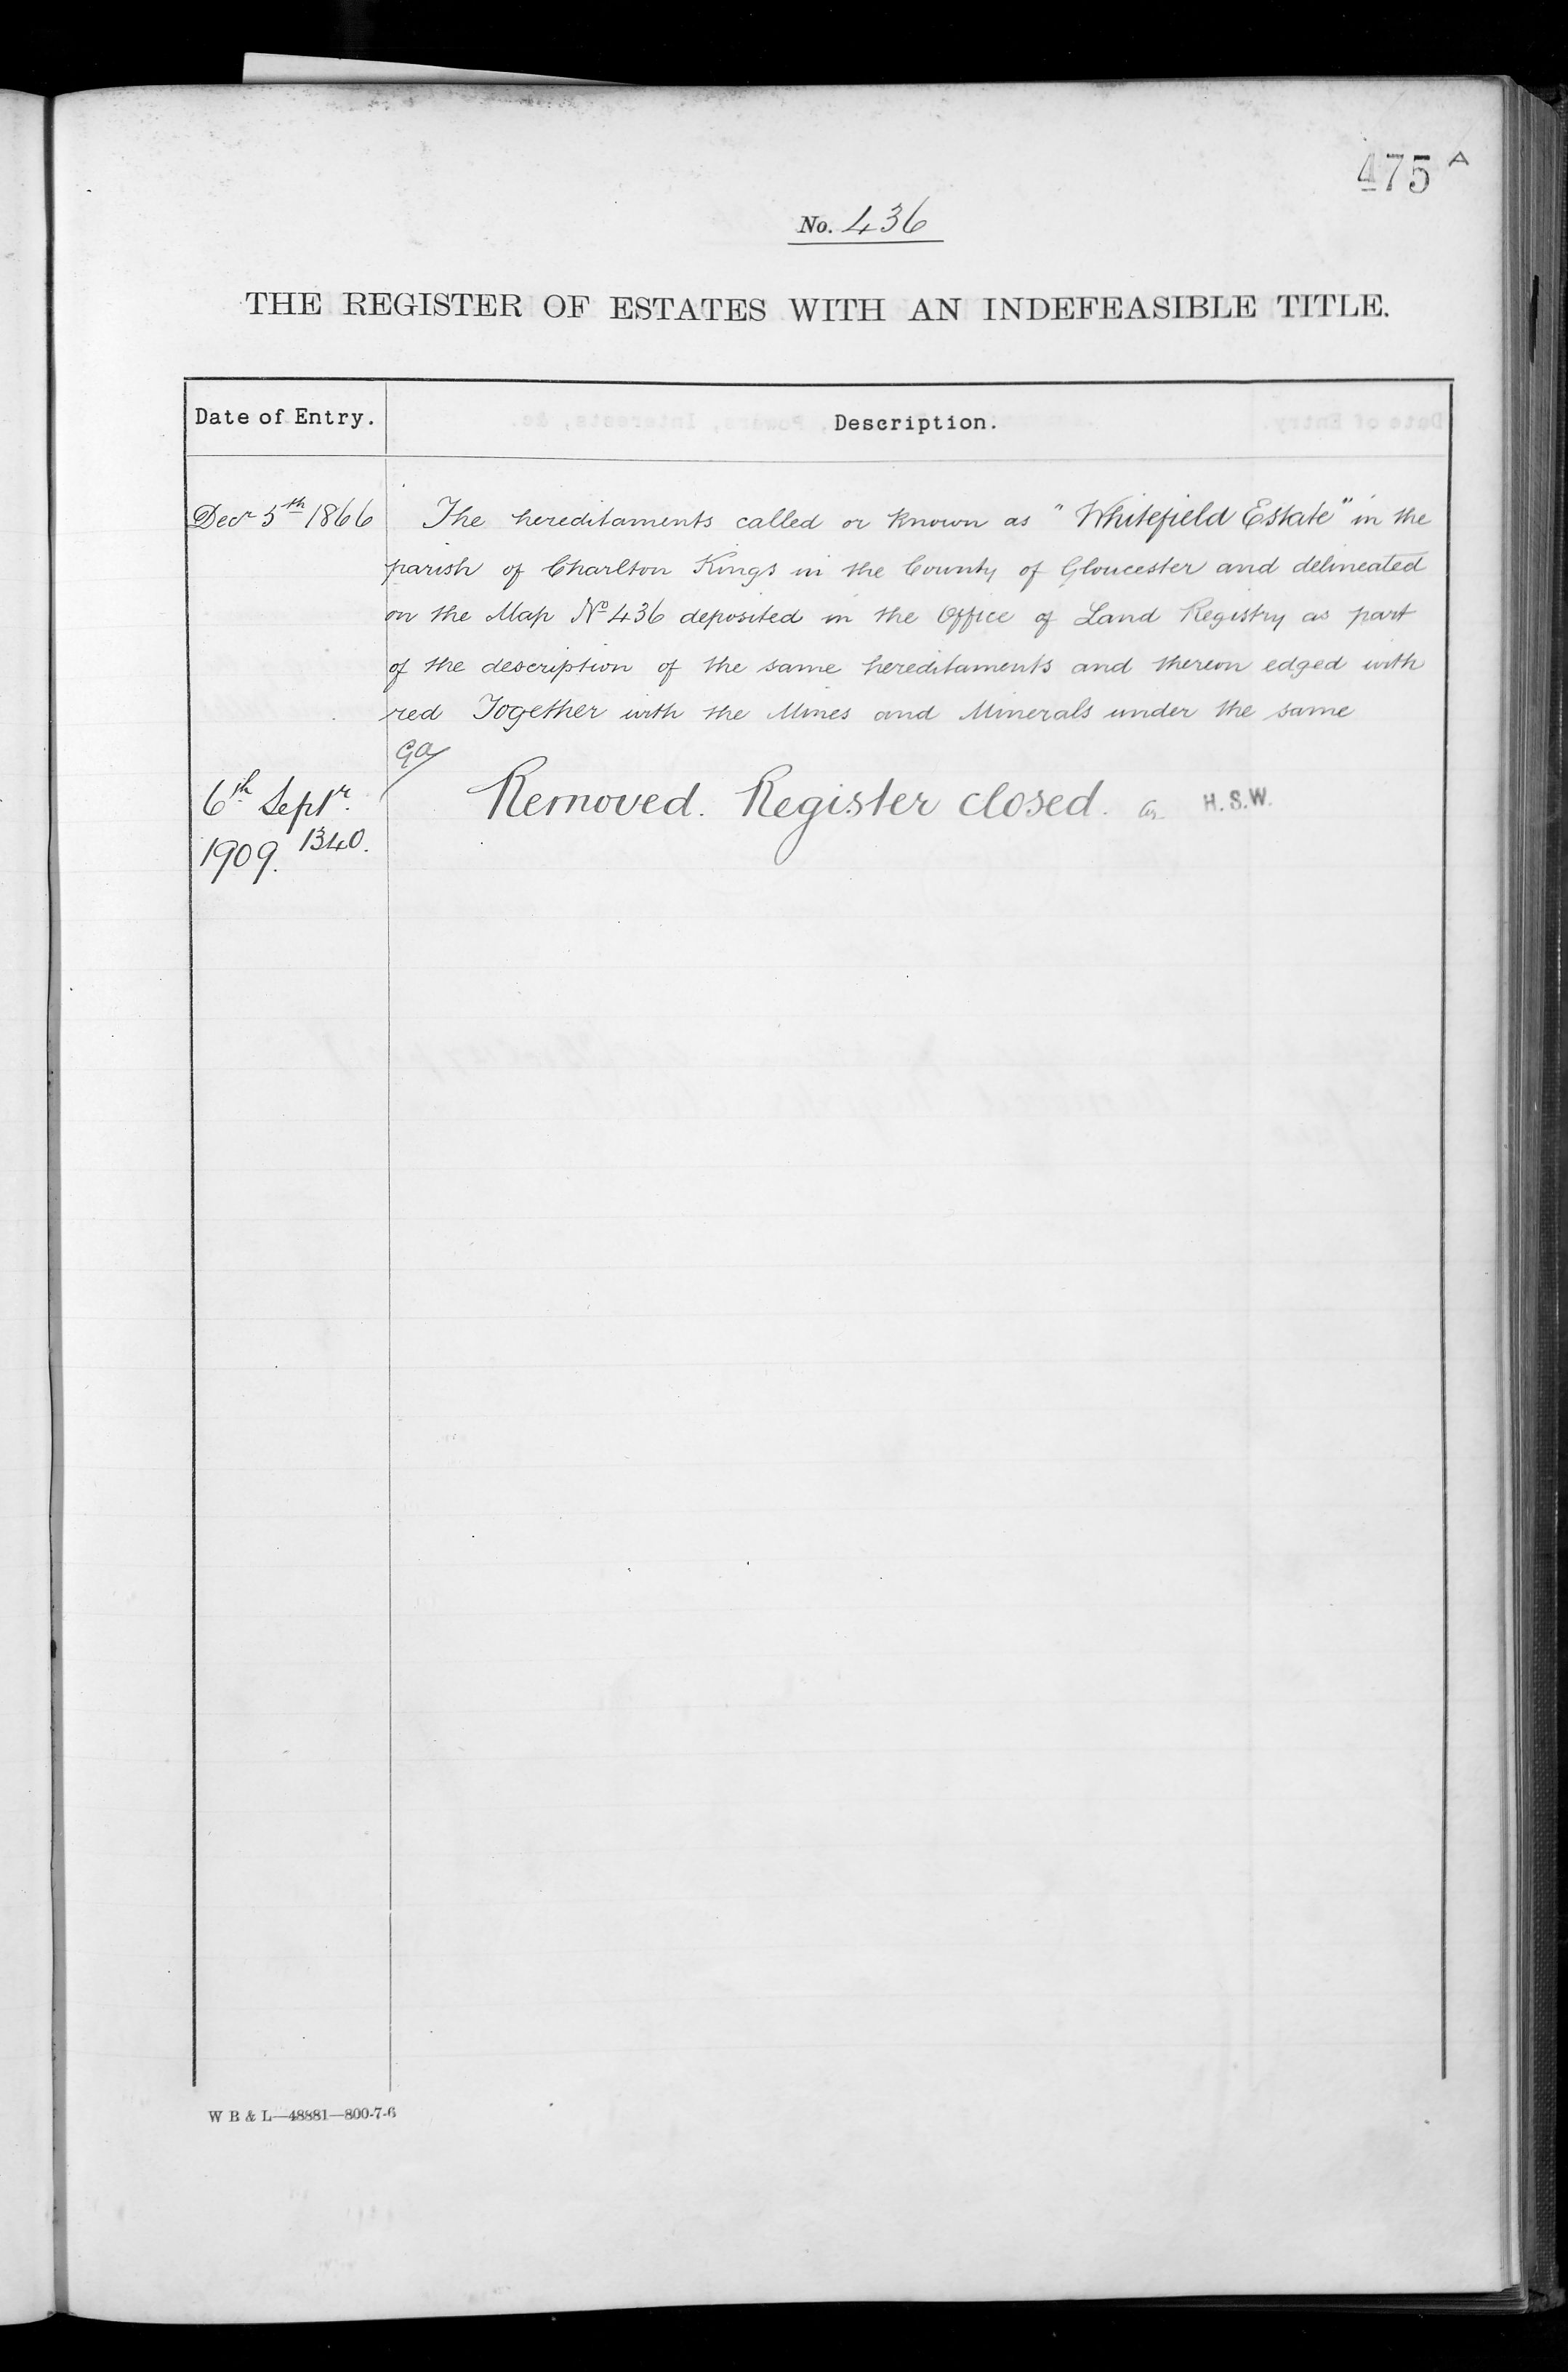 475 A
No. 436
THE REGISTER OF ESTATES WITH AN INDEFEASIBLE TITLE.
Date of Entry. Description.
Decr 5th 1866 The hereditaments called or known as "Whitefield Estate" in the
parish of Charlton Kings in the County of Gloucester and delineated
on the Map No 436 deposited in the Office of Land Registry as part
of the description of the same hereditaments and thereon edged with
red Together with the Mines and Minerals under the same
6th Septr. Removed. Register closed. H.S.W.
1909. 1340.
W B & L—48881—800-7-6